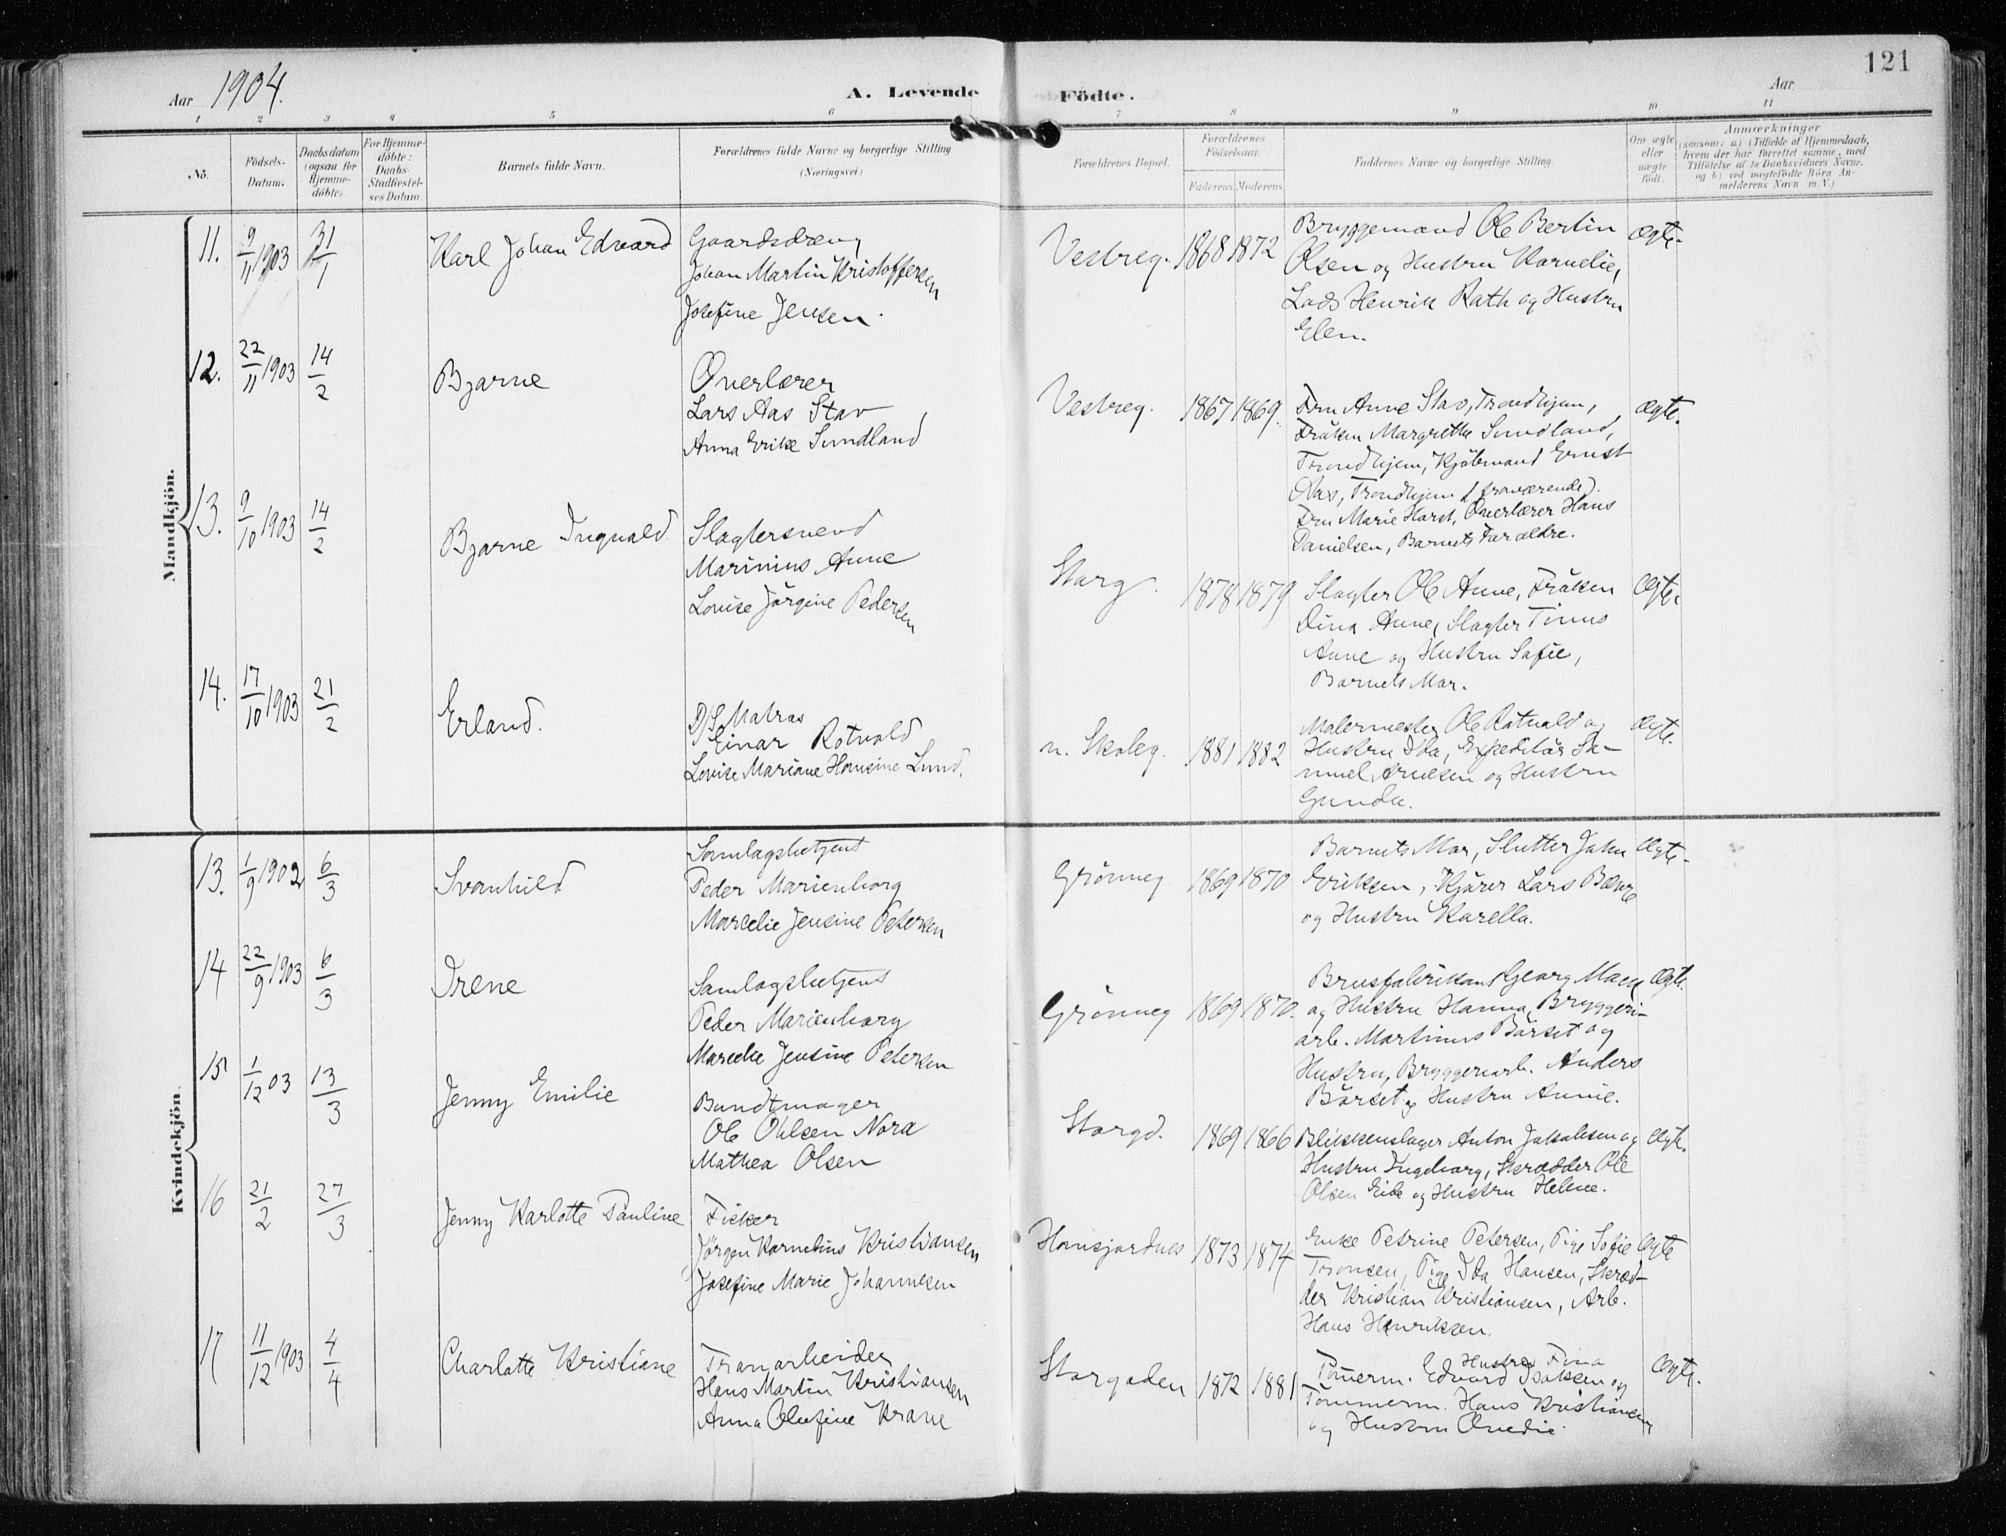 121
Aar 1904. A. Levende Födte. Aar
1 2 3 4 5 6 7 8 9 10 11
No.
Födsels-Datum.
Daabsdatum (ogsaa for Hjemme-döbte).
For Hjemme-döbte: Daabs-Stadfæstel-ses Datum
Barnets fulde Navn.
Forældrenes fulde Navne og borgerlige Stilling. (Næringsvei.)
Forældrenes Bopæl.
Forældrenes Födselsaar.
Faderens. Moderens.
Faddernes Navne og borgerlige Stilling.
Om ægte eller uægte födt.
Anmærkninger
(saasom: a) i Tilfælde af Hjemmedaab,
hvem der har forrettet samme, med
Tilföielse af to Daabsvidners Navne,
og b) ved uægtefödte Börn An-
melderens Navn m. V.)
Mandkjön.
11. 9/11 1903 31/1 Karl Johan Edvard
Gaardsdreng
Johan Martin Kristoffersen
Josefine Jensen.
Vestreg. 1868 1872
Bryggemand Ole Bertin
Olsen og Hustru Kornelie,
Lads Henrik Rath og Hustru
Elen.
Ægte.
12. 22/11 1903 14/2 Bjarne
Overlærer
Lars Aas Stav
Anna Erike Sundland
Vestreg. 1867 1869.
Fru Anne Stav, Trondhjem,
Fröken Margrethe Sundland,
Trondhjem, Kjöbmand Ernst
Aas, Trondhjem (fraværende).
Fru Marie Horst, Overlærer Hans
Danielsen, Barnets Forældre.
Ægte.
13. 9/10 1903 14/2 Bjarne Ingvald
Slagtersvend
Marinius Aune
Lovise Jörgine Pedersen
Storg. 1878 1879
Slagter Ole Aune, Fröken
Dina Aune, Slagter Tinus
Aune og Hustru Sofie,
Barnets Mor.
Ægte.
14. 17/10 1903 21/2 Erland.
D/S. Matros
Einar Rotvold
Lovise Mariane Hansine Lund.
n. Skoleg. 1881 1882
Malermester Ole Rotvold og
Hustru Ida, Expeditör Sa-
muel Arnesen og Hustru
Gunda.
Ægte.
Kvindekjön.
13. 1/9 1902 6/3 Svanhild
Samlagsbetjent
Peder Marienborg
Marcelie Jensine Petersen
Grönneg 1869 1870
Barnets Mor, Slutter Johan
Eriksen, Kjörer Lars
og Hustru Karella.
Ægte.
14 22/9 1903 6/3 Irene
Samlagsbetjent
Peder Marienborg
Marcelie Jensine Petersen
Grönneg 1869 1870.
Brusfabrikant Georg Mack
og Hustru Hanna, Bryggeri-
arb. Martinus Bårset og
Hustru, Bryggeriarb. Anders
Bårset og Hustru Annie.
Ægte.
15 1/12 03 13/3 Jenny Emilie
Bundtmager
Ole Ohlsen Nora
Mathea Olsen
Storgd. 1869 1866
Blikkenslager Anton Jakobsen og
Hustru Ingeborg, Skrædder Ole
Olsen Eide og Hustru Helene.
Ægte.
16 21/2 27/3 Jenny Karlotte Pauline
Fisker
Jörgen Kornelius Kristiansen
Josefine Marie Johannesen
Hansjordnes 1873 1874
Enke Petrine Petersen, Pige Sofie
Pige Ida Hansen, Skræd-
der Kristian Kristiansen, Arb.
Hans Henriksen.
Ægte
17 11/12 1903 4/4 Charlotte Kristiane
Tranarbeider
Hans Martin Kristiansen
Anna Olufine Krane
Storgaden 1872 1881
Hustru Fina
Tömerm. Edvard Isaksen og
Tömmerm. Hans Kristiansen
og Hustru Ovedie.
Ægte.